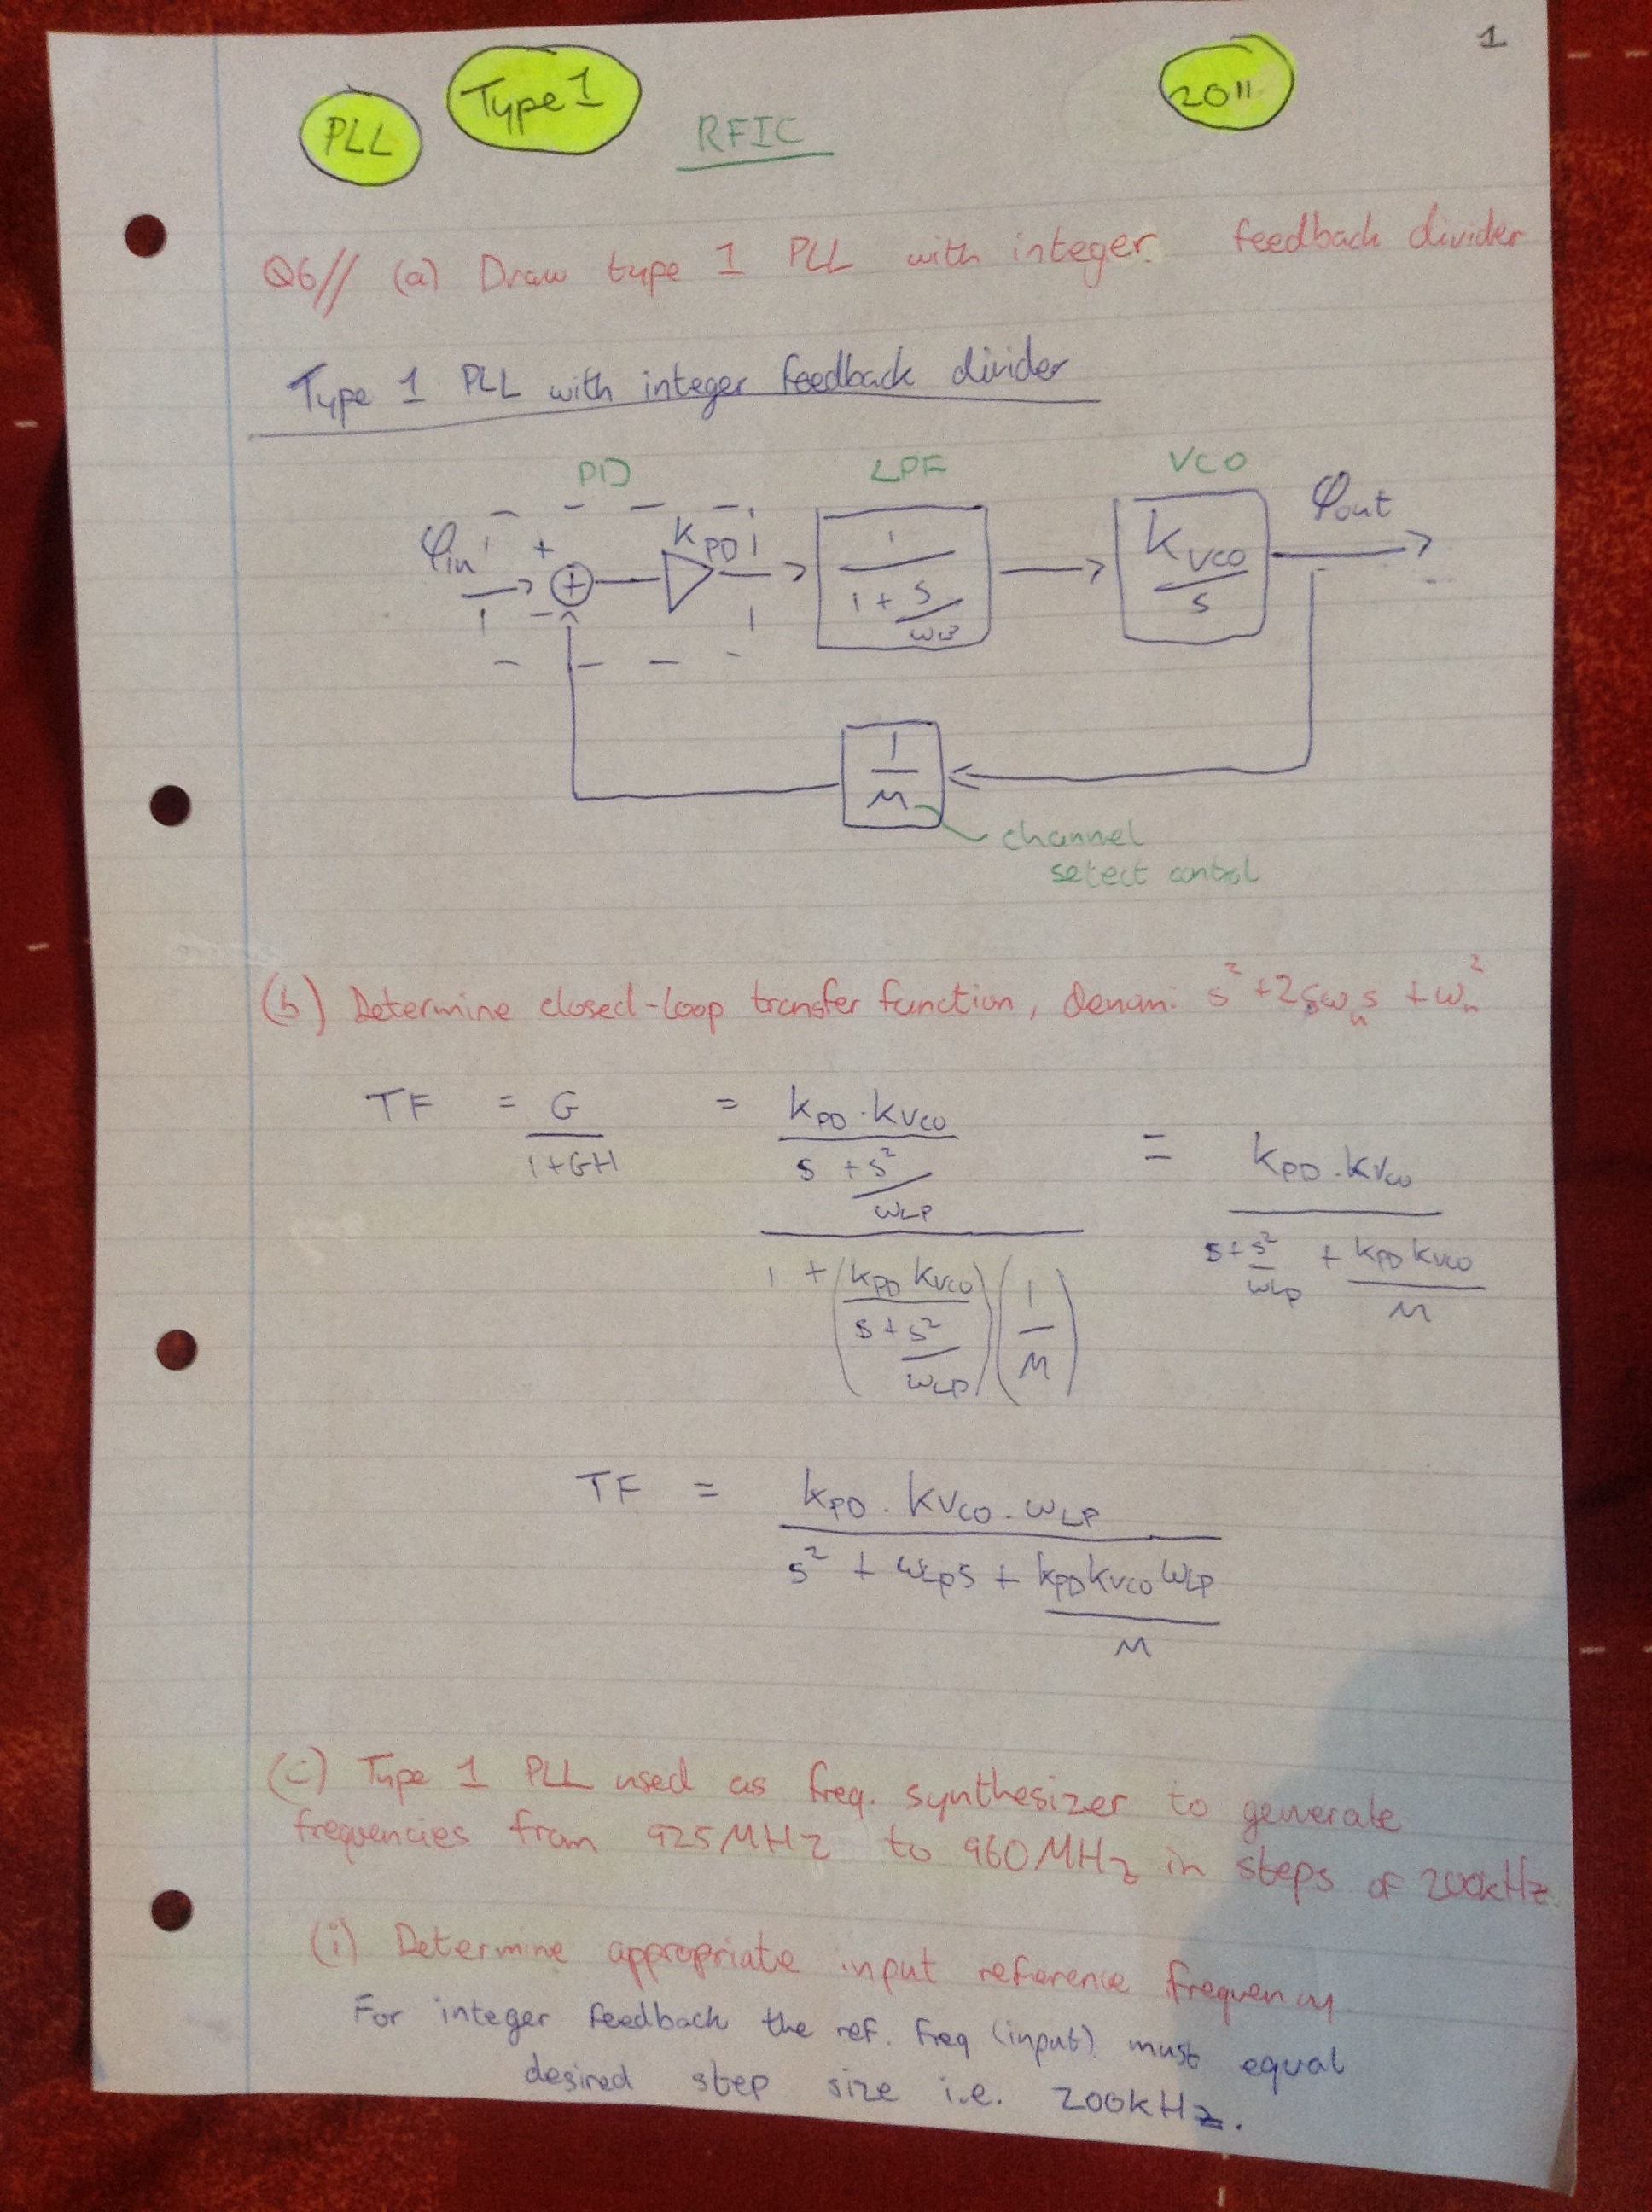 1
PLL Type 1 RFIC 2011
Q6// (a) Draw type 1 PLL with integer feedback divider
Type 1 PLL with integer feedback divider
PD LPF VCO
φin + - KPD 1/(1 + s/ωLP) KVCO/s φout
1/M
channel
select control
(b) Determine closed-loop transfer function, denom: s² + 2ζωns + ωn²
TF = G/(1+GH) = (KPD.KVCO/(s + s²/ωLP))/(1 + (KPD KVCO/(s + s²/ωLP))(1/M)) = KPD.KVCO/(s + s²/ωLP + KPD KVCO/M)
TF = KPD.KVCO.ωLP/(s² + ωLPs + KPDKVCOωLP/M)
(c) Type 1 PLL used as freq. synthesizer to generate
frequencies from 925MHz to 960MHz in steps of 200kHz.
(i) Determine appropriate input reference frequency.
For integer feedback the ref. freq (input) must equal
desired step size i.e. 200kHz.